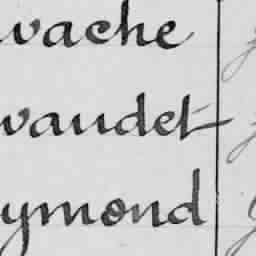 vache
vaudet
ymond